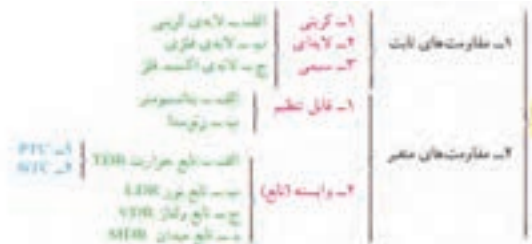 ۱ــ مقاومت‌های ثابت
۱ــ کربنی
۲ــ لایه‌ای
۳ــ سیمی
الف ــ لایه‌ی کربنی
ب ــ لایه‌ی فلزی
ج ــ لایه‌ی اکسید فلز
۲ــ مقاومت‌های متغیر
۱ــ قابل تنظیم
الف ــ پتانسیومتر
ب ــ رئوستا
۲ــ وابسته (تابع)
الف ــ تابع حرارت TDR
۱ــ PTC
۲ــ NTC
ب ــ تابع نور LDR
ج ــ تابع ولتاژ VDR
د ــ تابع میدان MDR